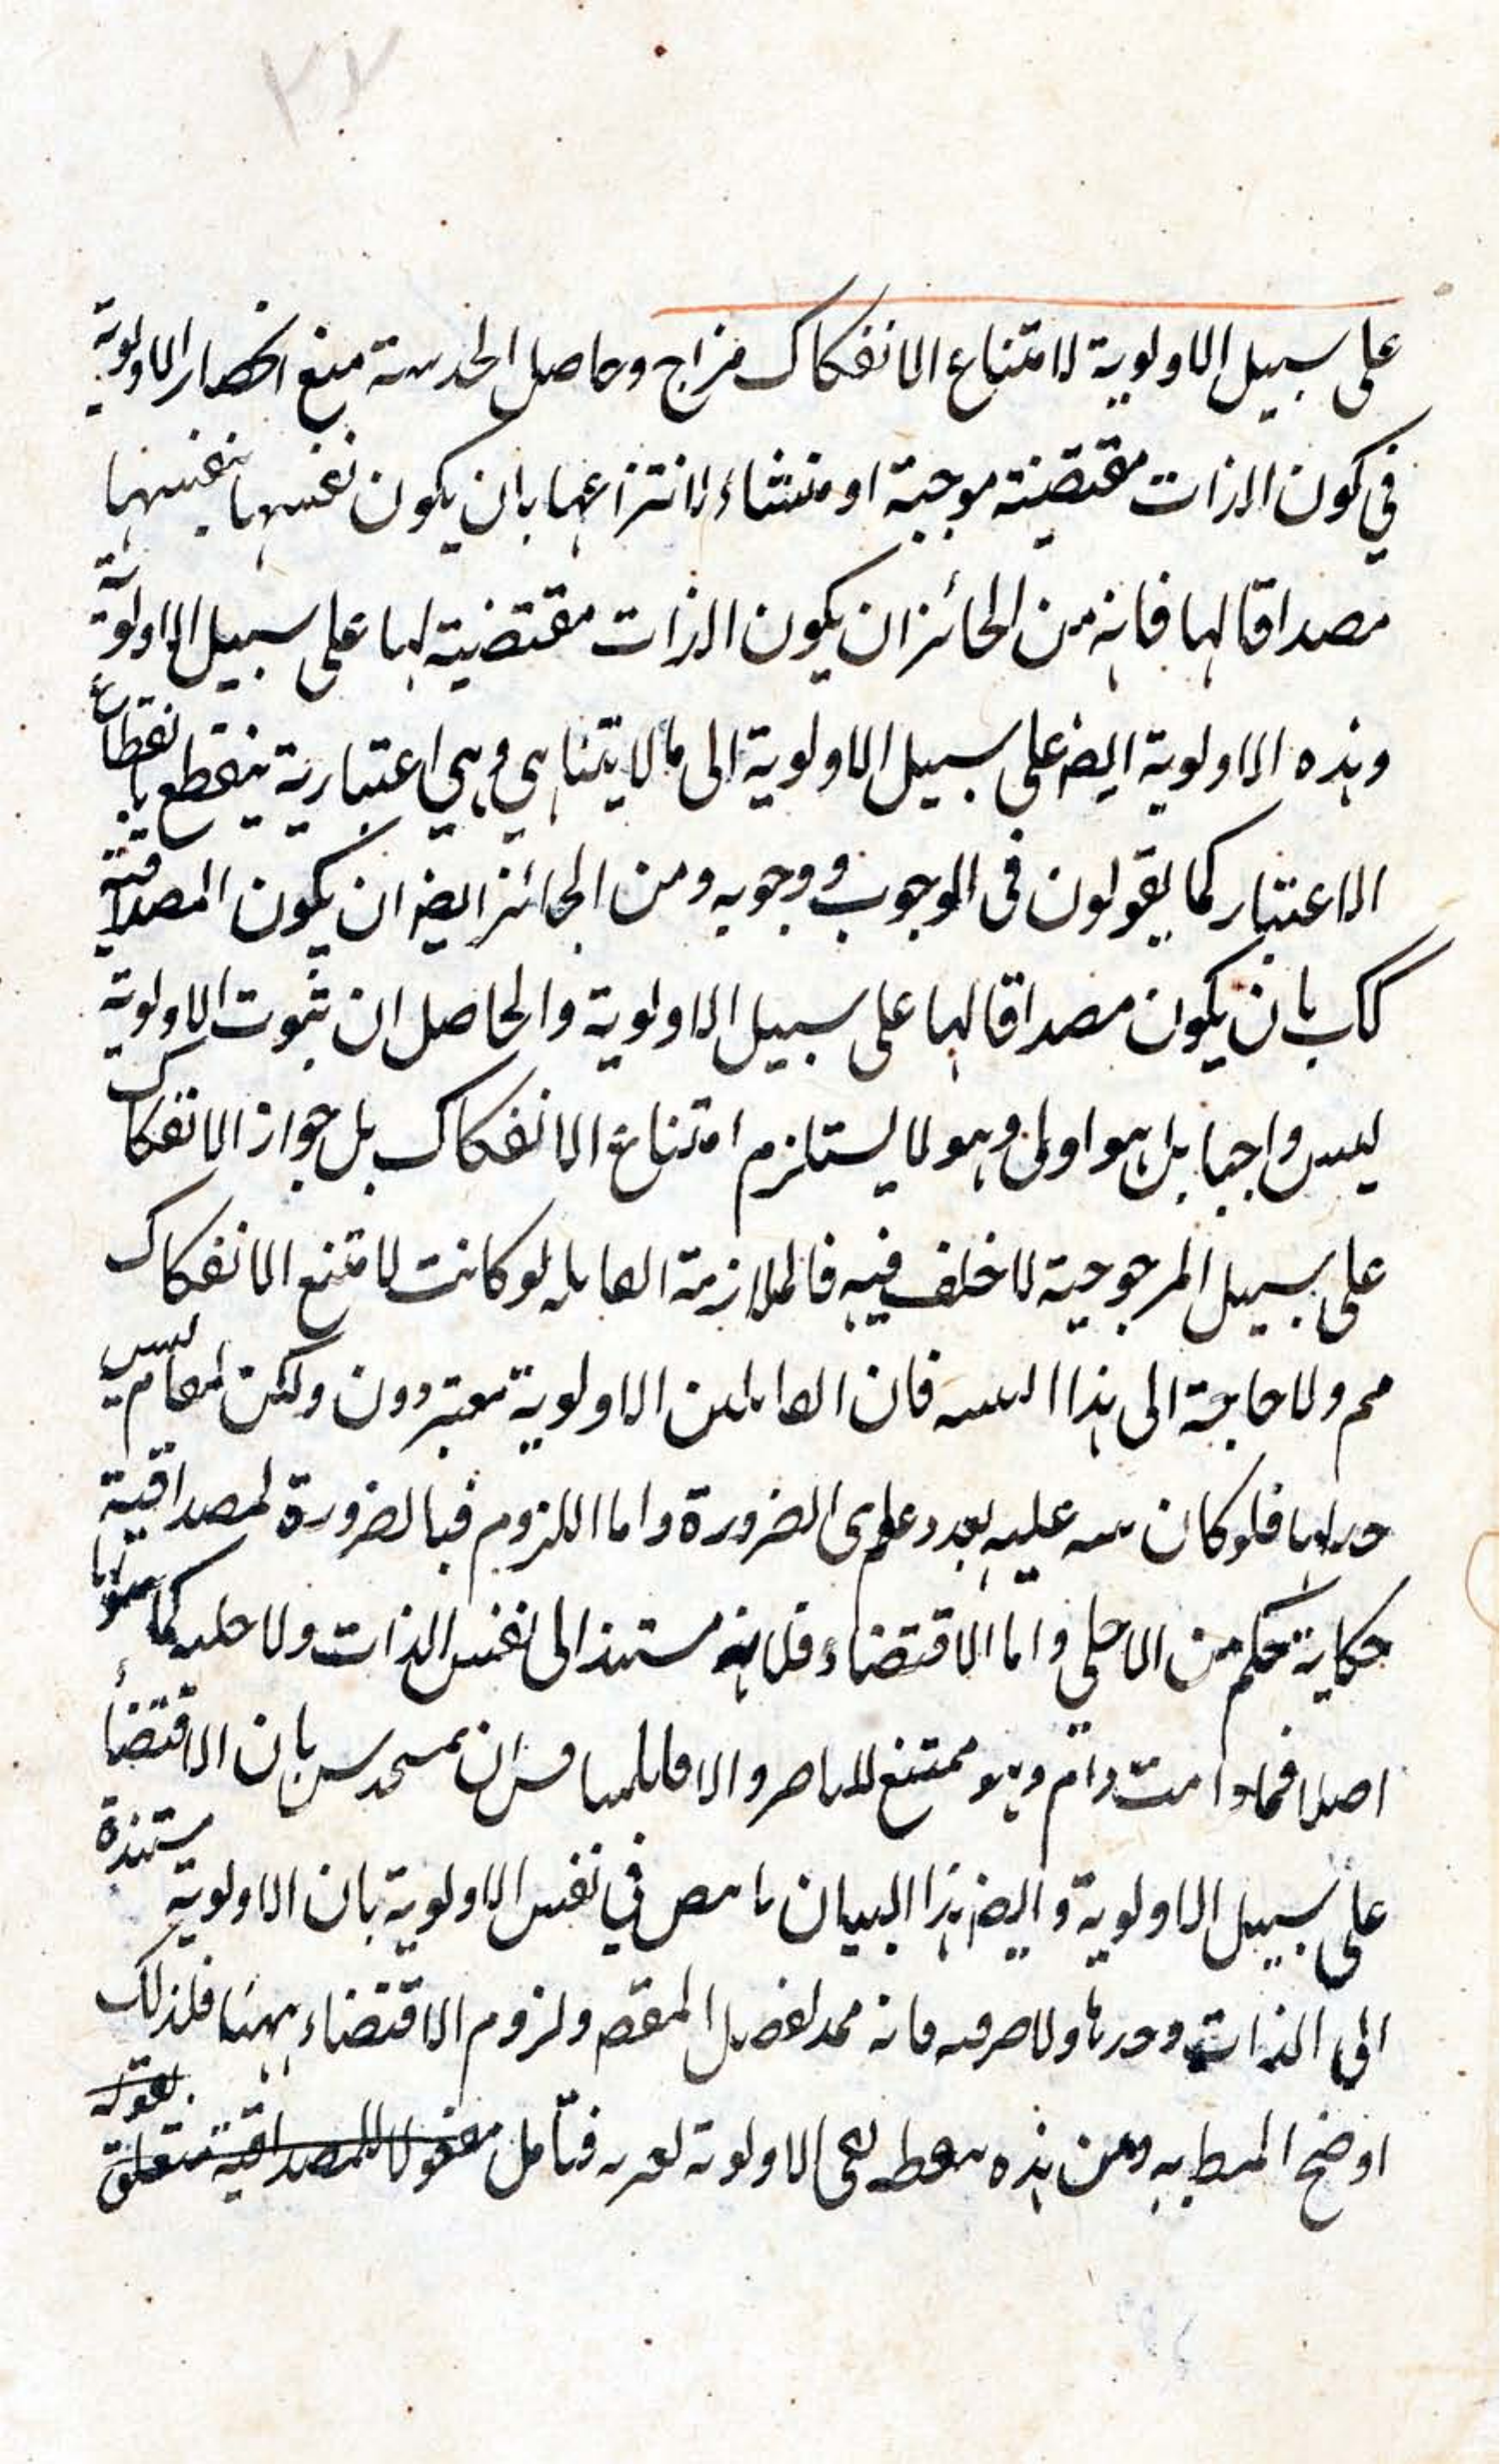 ٣٧
على سبيل الاولوية لامتناع الانفكاك مزاح وحاصل الخدشة منع انحصار الاولوية
في كون الذات مقتضية موجبة او منشاء لانتزاعها بان يكون نفسها بنفسها
مصداقا لها فانه من الجائز ان يكون الذات مقتضية لها على سبيل الاولوية
وهذه الاولوية ايضا على سبيل الاولوية الى ما لا يتناهي وهي اعتبارية ينقطع بانقطاع
الاعتبار كما يقولون في الوجوب ووجوبه ومن الجائز ايضا ان يكون المصداقية
كك بان يكون مصداقا لها على سبيل الاولوية والحاصل ان ثبوت الاولوية
ليس واجبا بل هو اولى وهو لا يستلزم امتناع الانفكاك بل جواز الانفكاك
على سبيل المرجوحية لا خلف فيه فالملازمة القايلة لو كانت لامتنع الانفكاك
مم ولا حاجة الى هذا السند فان القايلين الاولوية معتبرون ولكن المقام ليس
فلو كان عليه بعد دعوى الضرورة واما اللزوم فبالضرورة لمصداقية
حكاية حكم من الاحلي واما الاقتضاء فلانه مستند الى نفس الذات ولا كما
اصلا فما دامت دام وهو ممتنع والا بان الاقتضاء
على سبيل الاولوية وايضا هذا البيان في نفس الاولوية بان الاولوية مستندة
الى الذات وحدها ولا فانه المقصد ولزوم الاقتضاء ههنا فلذلك
اوضح المط به ومن هذه الاولوية فتأمل مفعولا للمصداقية متعلق بقوله